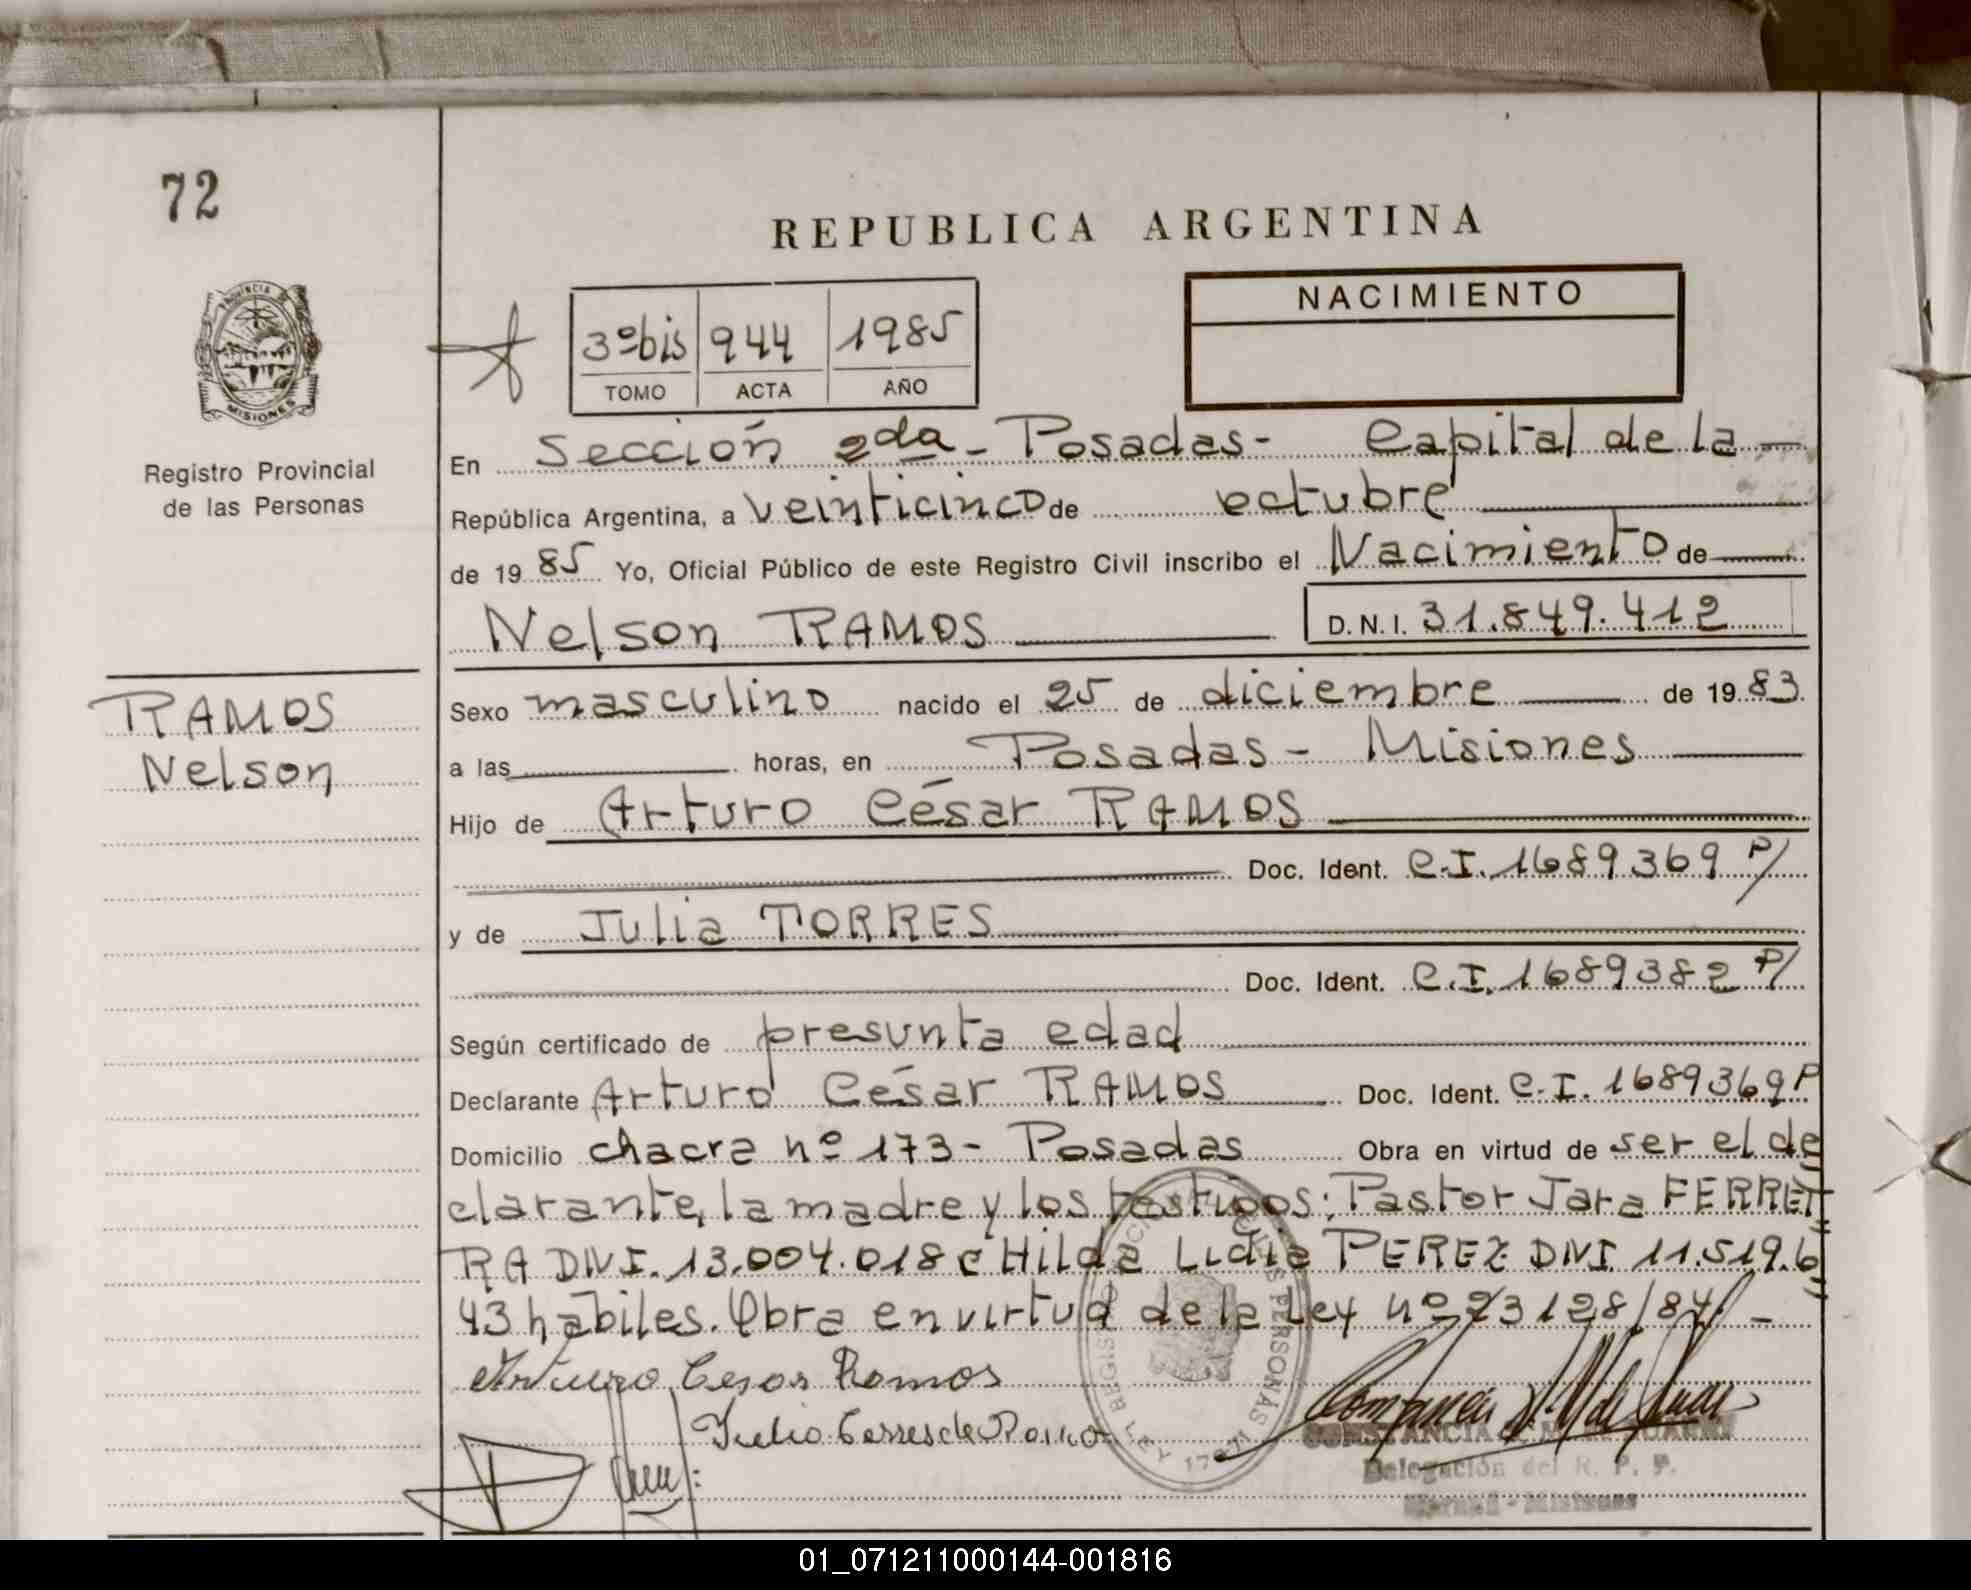 72
REPUBLICA ARGENTINA
PROVINCIA DE
MISIONES
Registro Provincial
de las Personas
3º bis 944 1985
TOMO ACTA AÑO
NACIMIENTO
En Sección 2da - Posadas - Capital de la
República Argentina, a veinticinco de octubre
de 1985 Yo, Oficial Público de este Registro Civil inscribo el Nacimiento de
Nelson RAMOS D.N.I. 31.849.412
RAMOS
Nelson
Sexo masculino nacido el 25 de diciembre de 1983.
a las horas, en Posadas - Misiones
Hijo de Arturo César RAMOS
Doc. Ident. C.I. 1689369 P/
y de Julia TORRES
Doc. Ident. C.I. 1689382 P/
Según certificado de presunta edad
Declarante Arturo César RAMOS Doc. Ident. C.I. 1689369 P
Domicilio chacra nº 173 - Posadas Obra en virtud de ser el de
clarante, la madre y los testigos: Pastor Jara FERREI
RA DNI. 13.004.018 e Hilda Lidia PEREZ DNI. 11.519.6
43 hábiles. Obra en virtud de la Ley nº 23128/84. -
Arturo Cesar Ramos
Julia Torres de Ramos
Delegación del R. P. P.
01_071211000144-001816